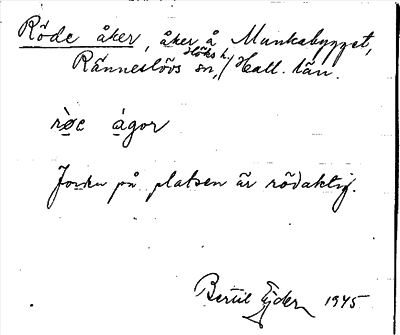 Röde åker, åker å Munkabygget,
Ränneslövs sn, Höks h., Hall. län.
rø̀e ågor
Jorden på platsen är rödaktig.
Bertil Ejder 1945